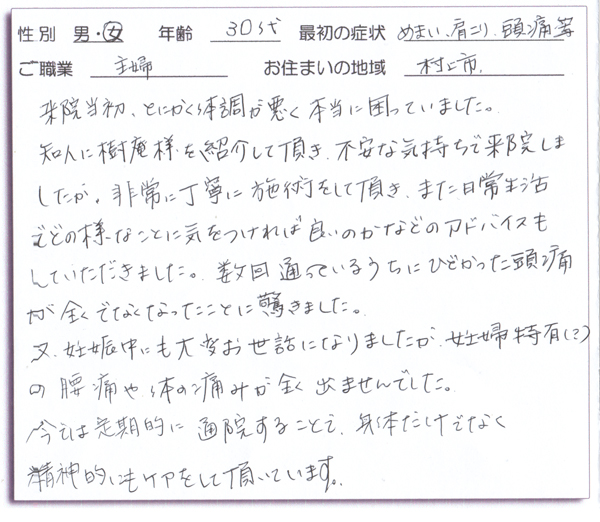 性別 男・女 年齢 30代 最初の症状 めまい、肩こり、頭痛等
ご職業 主婦 お住まいの地域 村上市.
来院当初、とにかく体調が悪く本当に困っていました。
知人に樹庵様を紹介して頂き、不安な気持ちで来院しま
したが、非常に丁寧に施術をして頂き、また日常生活
でどの様なことに気をつければ良いのかなどのアドバイスも
していただきました。数回通っているうちにひどかった頭痛
が全くでなくなったことに驚きました。
又、妊娠中にも大変お世話になりましたが、妊婦特有(?)
の腰痛や体の痛みが全く出ませんでした。
今では定期的に通院することで、身体だけでなく
精神的にもケアをして頂いています。